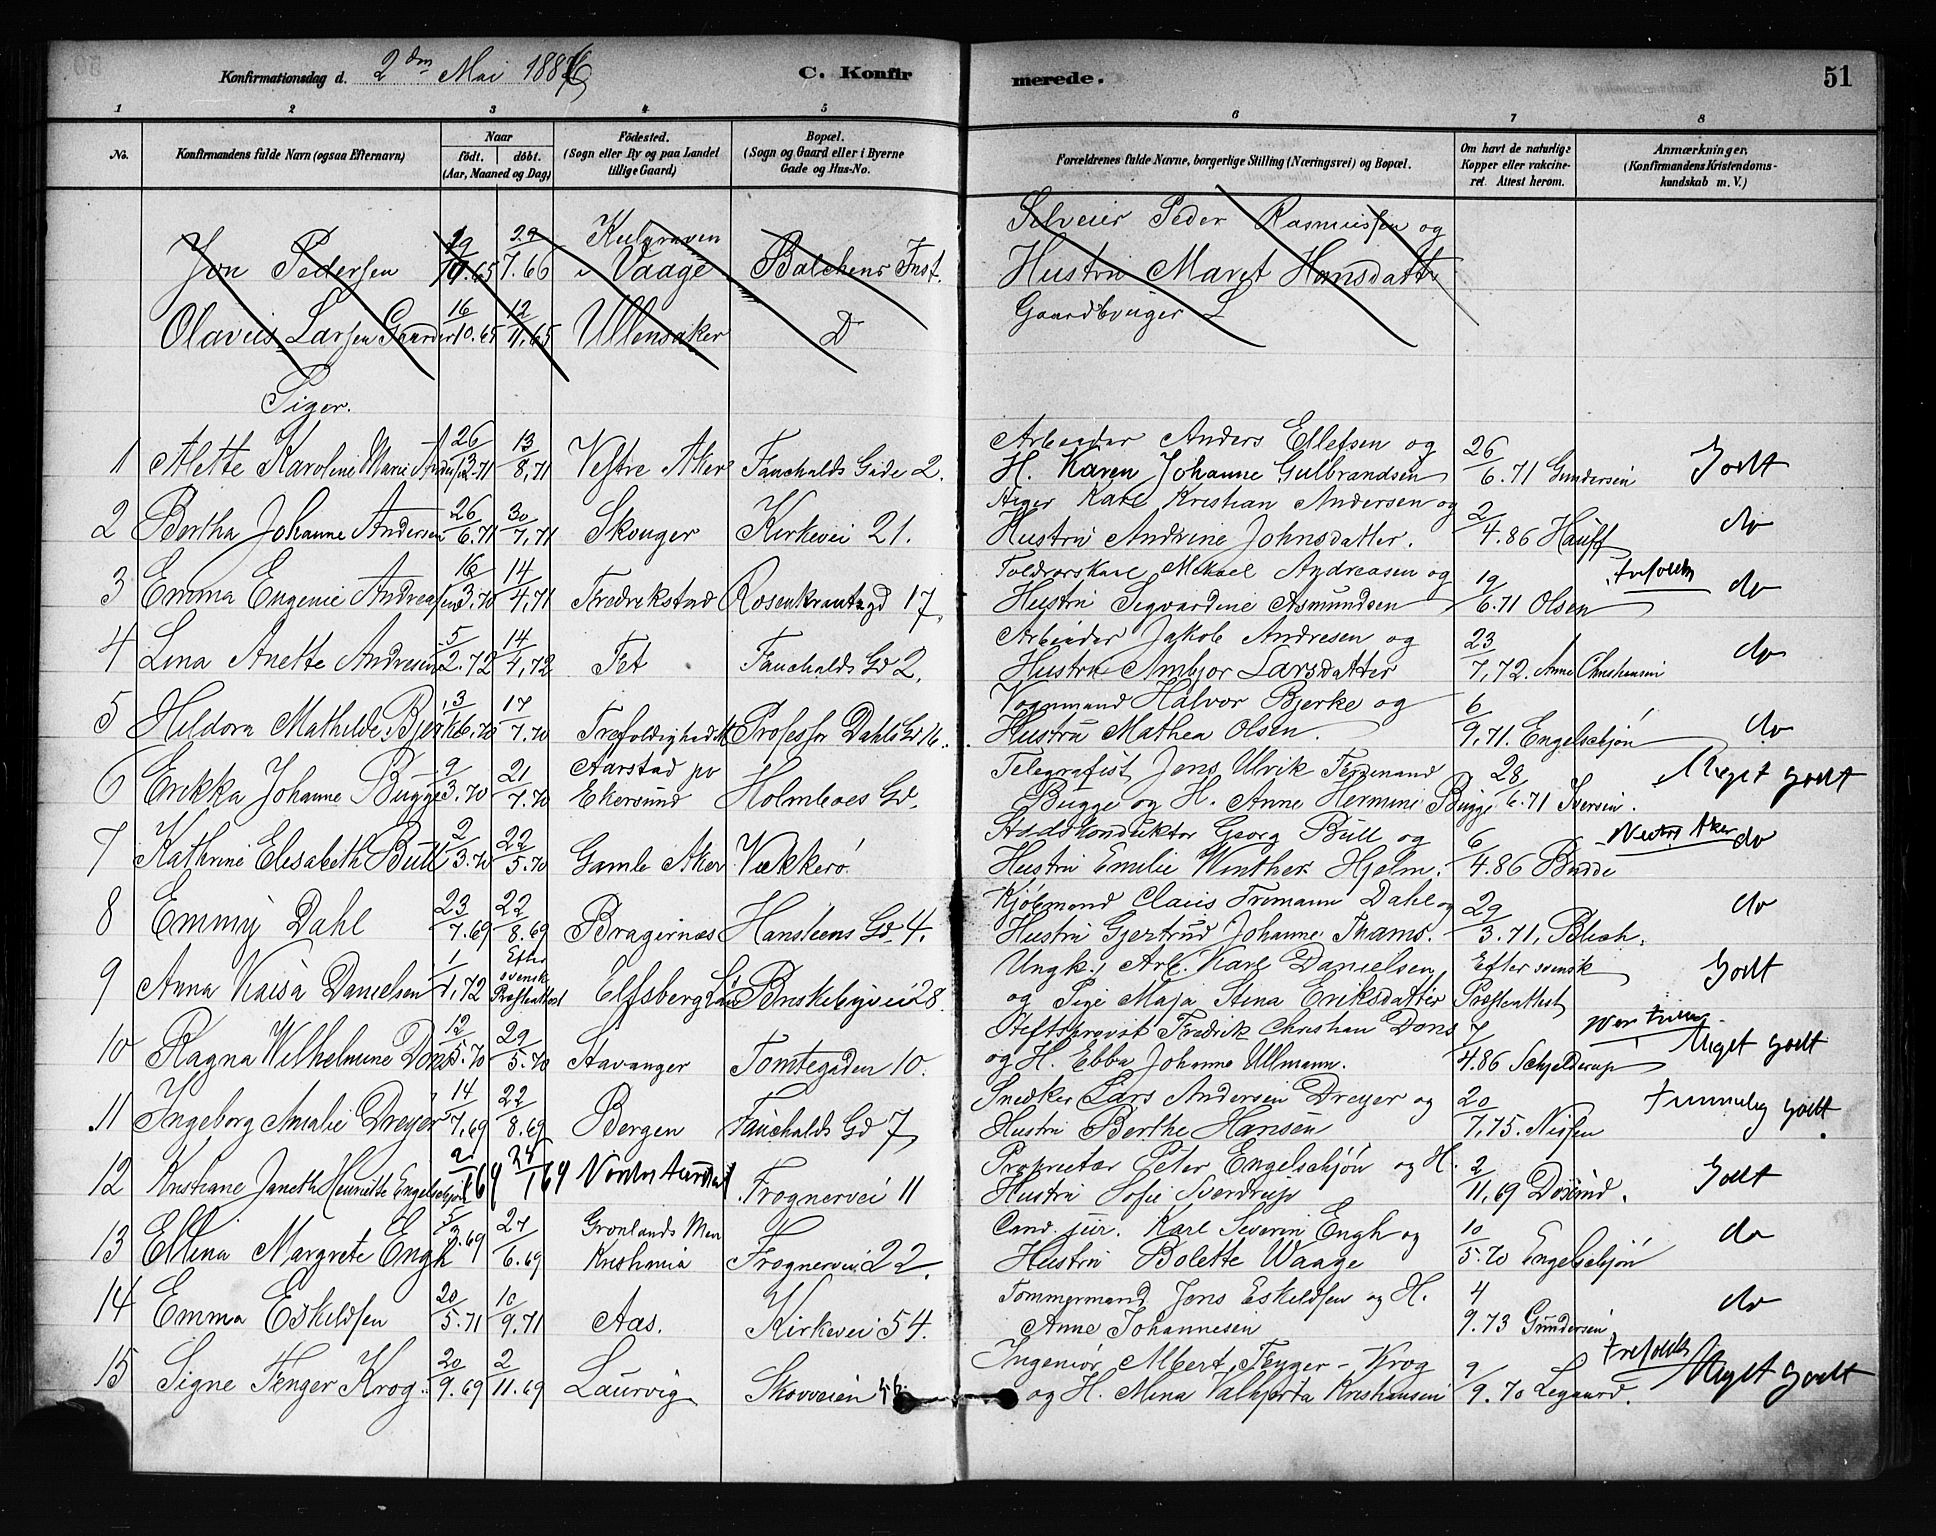 Konfirmationsdag d. 2den Mai 1886 C. Konfirmerede. 51
1 2 3 4 5 6 7 8
No. Konfirmandens fulde Navn (ogsaa Efternavn) Naar født. døbt. (Aar, Maaned og Dag) Fødested. (Sogn eller By og paa Landet tillige Gaard) Bopæl. (Sogn og Gaard eller i Byerne Gade og Hus-No. Forældrenes fulde Navne, borgerlige Stilling (Næringsvei) og Bopæl. Om havt de naturlige Kopper eller vakcineret. Attest herom. Anmærkninger. (Konfirmandens Kristendomskundskab m. V.)
Peder Rasmussen og
Jon Pedersen 29/7.66 i Vaage Balchens Inst. Hustru Maret Hansdatter
Gaardbruger
Olaves Larsen Gaarder 16/10.65 12/11.65 Ullensaker D
Piger.
Arbeider Anders Ellefsen og
1 Alette Karoline Marie 26/3.71 13/8.71 Vestre Aker Fauchalds Gade 2. H. Karen Johanne Gulbrandsen 26/6.71 Gundersen Godt
Karl Kristian Andersen og
2 Bertha Johanne Andersen 26/6.71 30/7.71 Skouger Kirkevei 21. Hustru Andrine Johnsdatter. 2/4.86 Hauff do
Mikael Andreasen og
3 Emma Eugenie Andreasen 16/3.70 14/4.71 Fredrikstad Rosenkrantzgd 17 Hustru Segvardine Asmundsen 19/6.71 Olsen do
Arbeider Jakob Andresen og
4 Lina Anette Andresen 5/2.72 14/4.72 Fet Fauchalds Gd 2. Hustru Ambjør Larsdatter 23/7.72. Anne Christiansen do
Vognmand Halvor Bjerke og
5 Heldora Mathilde Bjerke 3/6.70 17/7.70 Trefoldighed Professor Dahls Gd 16. Hustru Mathea Olsen. 6/9.71. Engelschjøn do
Aarstad pr Telegrafist Jens Ulrik Ferdinand
6 Erikka Johanne Bugge 9/3.70 21/7.70 Ekersund Holmboes Gd. Bugge og H. Anne Hermine Bugge 28/6.71 Iversen. Meget godt
Stadskonduktør Georg Bull og Vestre Aker
7 Kathrine Elisabeth Bull 2/3.70 22/5.70 Gamle Aker Vækkerø. Hustru Emilie Winther Hjelm. 6/4.86 Budde do
Kjøbmand Claus Fremann Dahl og
8 Emmy Dahl 23/7.69 22/8.69 Bragernæs Hansteens Gd. 4. Hustru Gjertrud Johanne Thams. 29/3.71. Blich. do
Efter svensk Ungk. Arb. Karl Danielsen, Efter svensk
9 Anna Kaisa Danielsen 1/1.72 Præsteattest Elfsberg Län Briskebyvei 28. og Pige Maja Stina Eriksdatter Præsteattest Godt
Stiftsprovst Fredrik Christian Dons
10 Ragna Wilhelmine Dons 12/5.70 29/5.70 Stavanger Tomtegaden 10. og H. Ebba Johanne Ullmann. 7/4.86 Schjelderup Meget godt
Snedker Lars Andersen Dreyer og
11 Ingeborg Amalie Dreyer 14/7.69 22/8.69 Bergen Fauchalds Gd 7 Hustru Berthe Hansen 20/7.75. Nissen Temmelig godt
Proprietær Peter Engelschjøn og H.
12 Kristiane Janethe Henriette Engelschjøn Frognervei 11 Hustru Sofie Sverdrup 2/11.69 Godt
Grønlands Men Cand. jur. Karl Severin Engh og
13 Ellena Margrete Engh 5/3.69 27/6.69 Kristiania Frognervei 22. Hustru Bolette Waage 10/5.70 Engelschjøn do
Tømmermand Jens Eskildsen og H.
14 Emma Eskildsen 20/5.71 10/9.71 Aas. Kirkevei 54. Anne Johannesen 4/9.73 Gundersen do
Ingeniør Albert Fenger-Krog
15 Signe Fenger Krog. 20/9.69 2/11.69 Laurvig Skovveien og H. Mina Valbjørta Kristiansen 9/9.70 Legaard. Meget godt